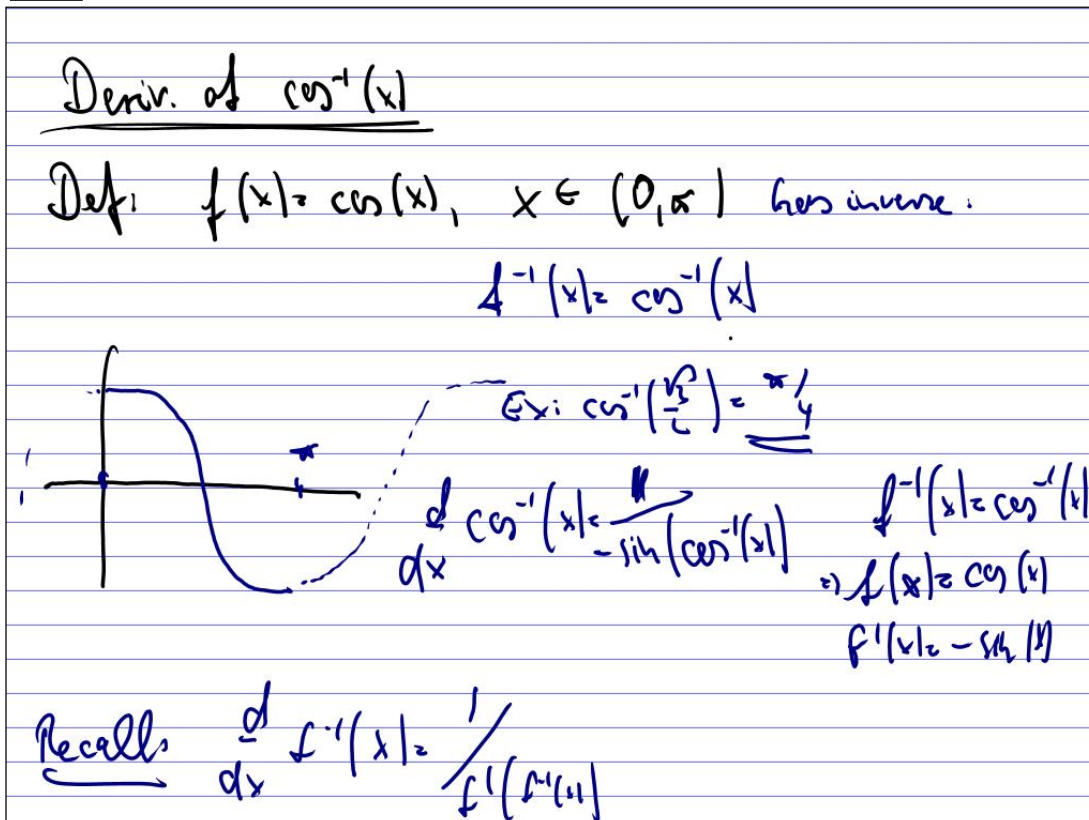 Deriv. of cos⁻¹(x)
Def: f(x) = cos(x), x ∈ (0, π) has inverse:
f⁻¹(x) = cos⁻¹(x)
Ex: cos⁻¹(√3/2) = π/4
π
d/dx cos⁻¹(x) = 1/-sin(cos⁻¹(x))
f⁻¹(x) = cos⁻¹(x)
=) f(x) = cos(x)
f'(x) = -sin(x)
Recall: d/dx f⁻¹(x) = 1/f'(f⁻¹(x))